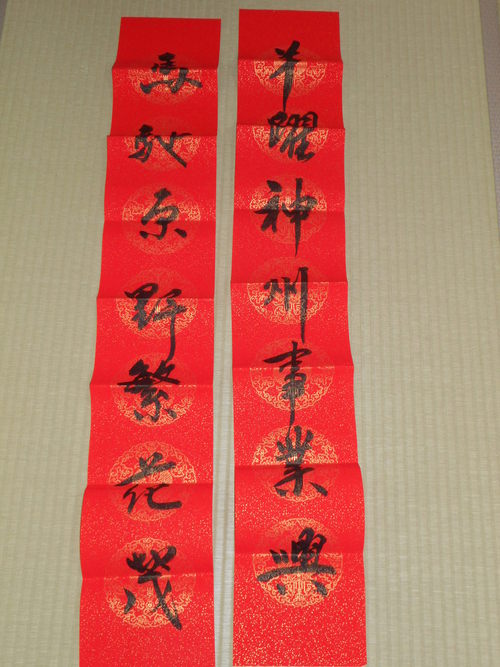 羊躍神州事業興
馬馳原野繁花茂